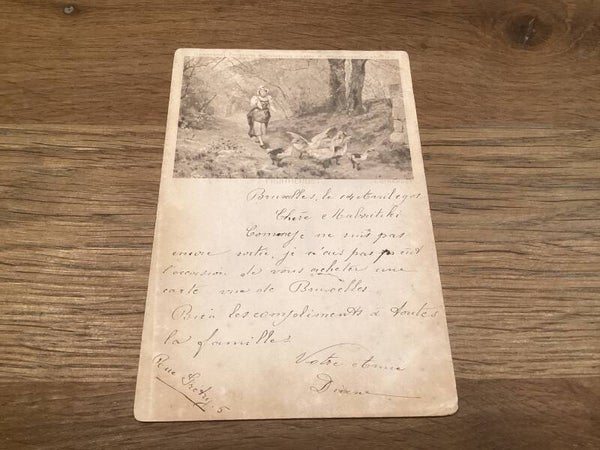 Bruxelles, le
Chère
Comme je ne suis pas
encore sortie, je n'ais pas
l'occasion de vous acheter une
carte vue de Bruxelles.
Bien les compliments à toutes
la familles
Votre Amie
Rue Grétry, 5